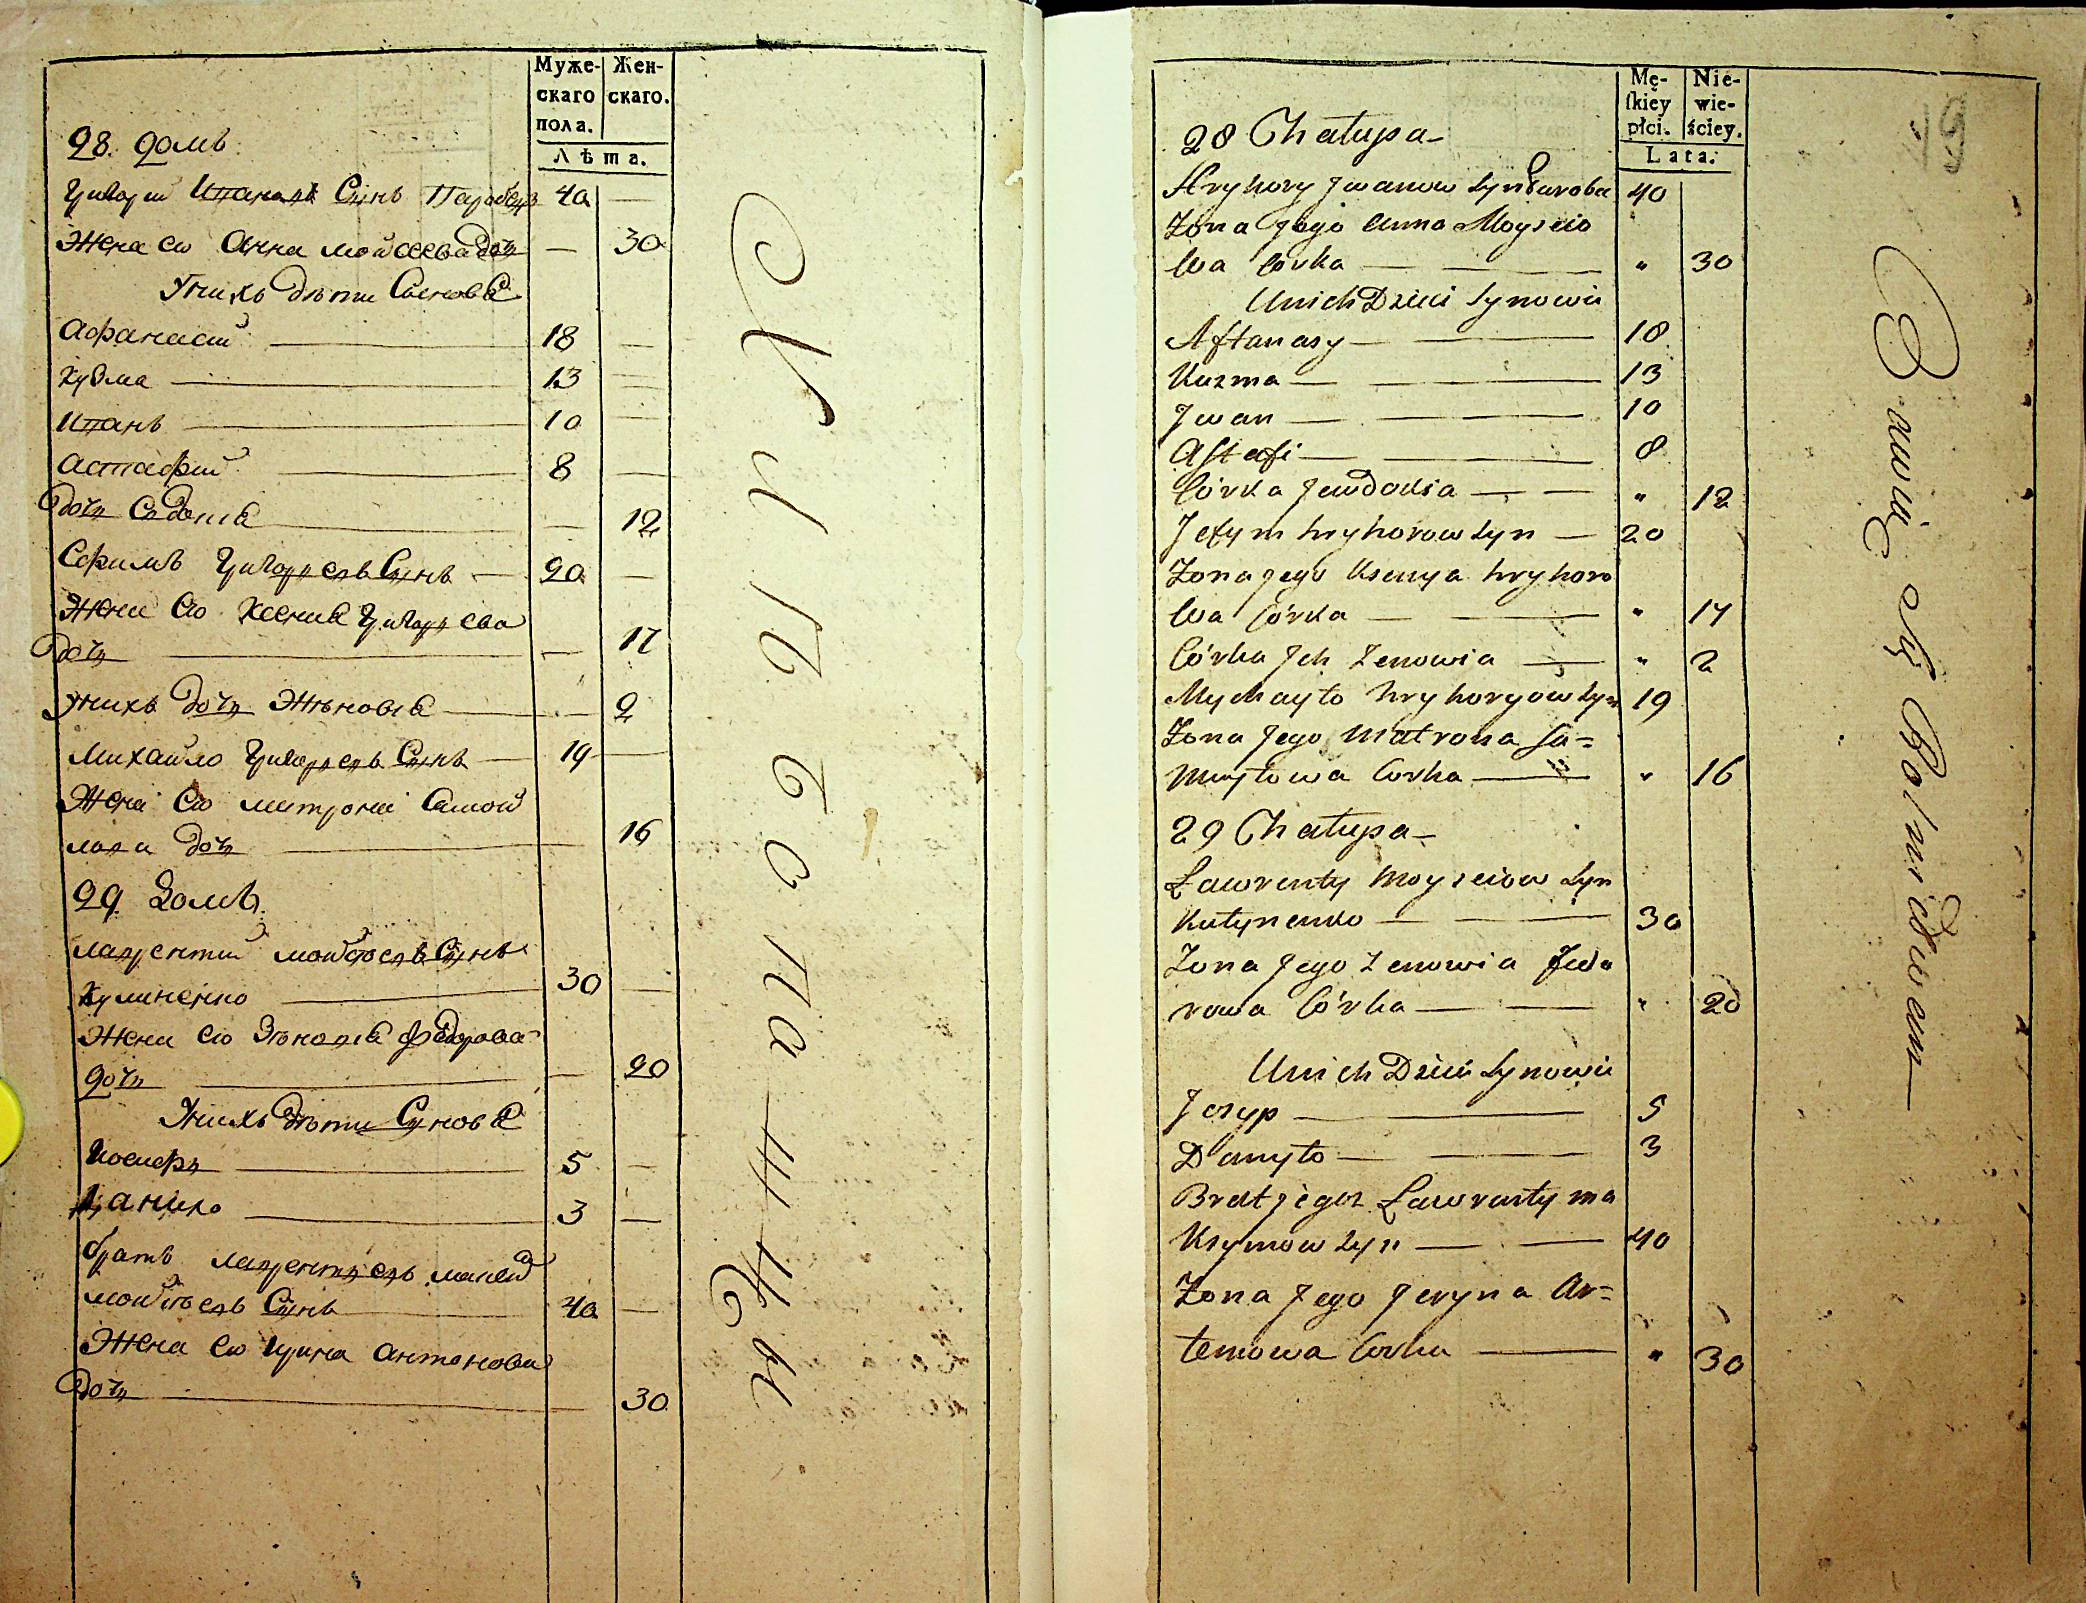 Муже-
скаго
пола.
Жен-
скаго.
Лѣта.
28. домъ.
Григорій Ивановъ Сынъ
40
Жена его Анна мойсеева дочь — 30
Унихъ дѣти Сыновѣ
Афанасій — 18
Кузма — 13
Иванъ — 10
Астафій — 8
дочь — 12
Ефимъ Григорьевъ Сынъ — 20
Жена его Ксения Григорьева
дочь — 17
Унихъ дочь Зѣновія — 2
Михайло Григорьевъ Сынъ — 19
Жена его митрона Самой
лова дочь — 16
29. Домъ.
лаврентий мойсѣевъ Сынъ
Кулиненко — 30
Жена его Зѣновія федорова
дочь — 20
Унихъ дѣти Сыновѣ
Иосифъ — 5
Данило — 3
братъ лаврентьевъ
мойсѣевъ Сынъ — 40
Жена его Ирина антонова
дочь — 30
Mę-
ſkiey
płci.
Nie-
wie-
ściey.
Lata.
19
28 Chałupa
Hryhory Jwanow syn 40
Zona Jego Anna Moyseio
wa Corka — 30
Unich Dzieci Synowie
Aftanasy — 18
Kuzma — 13
Jwan — 10
Astafi — 8
Córka Jewdokia — 12
Jefym hryhorow syn — 20
Zona jego Ksenya hryhoro
wa Córka — 17
Córka Jch Zenowia — 2
Mychayło hryhoryow syn 19
Zona Jego Matrona Sa=
muyłowa Corka — 16
29 Chałupa
Ławrenty Moyseiow syn
Kułynenko — 30
Zona Jego Zenowia Fedo
rowa Córka — 20
Unich Dzieci Synowie
Jozyp — 5
Danyło — 3
Brat jego Ławrenty ma
Ksymow syn — 40
Zona Jego Jeryna Ar=
temowa Corka — 30